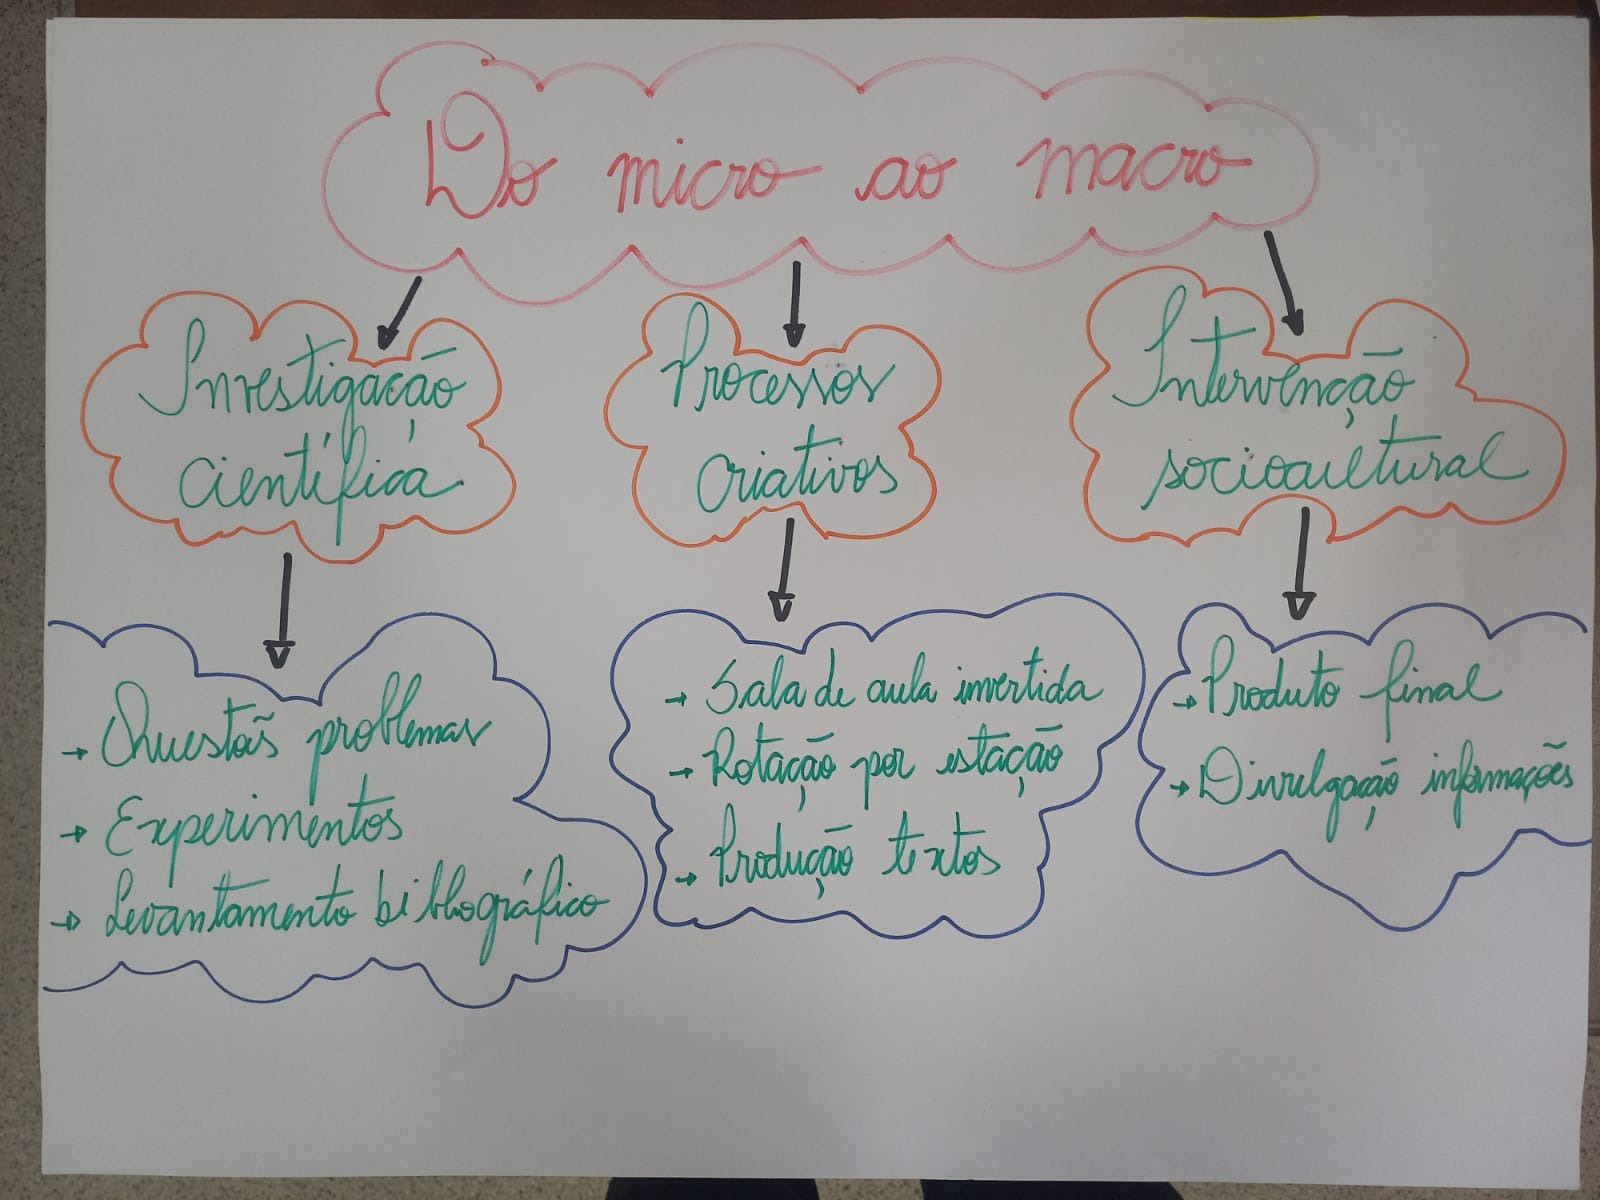 Do micro ao macro
Investigação
científica
Processos
criativos
Intervenção
sociocultural
→ Questões problemas
→ Experimentos
→ Levantamento bibliográfico
→ Sala de aula invertida
→ Rotação por estação
→ Produção textos
→ Produto final
→ Divulgação informações